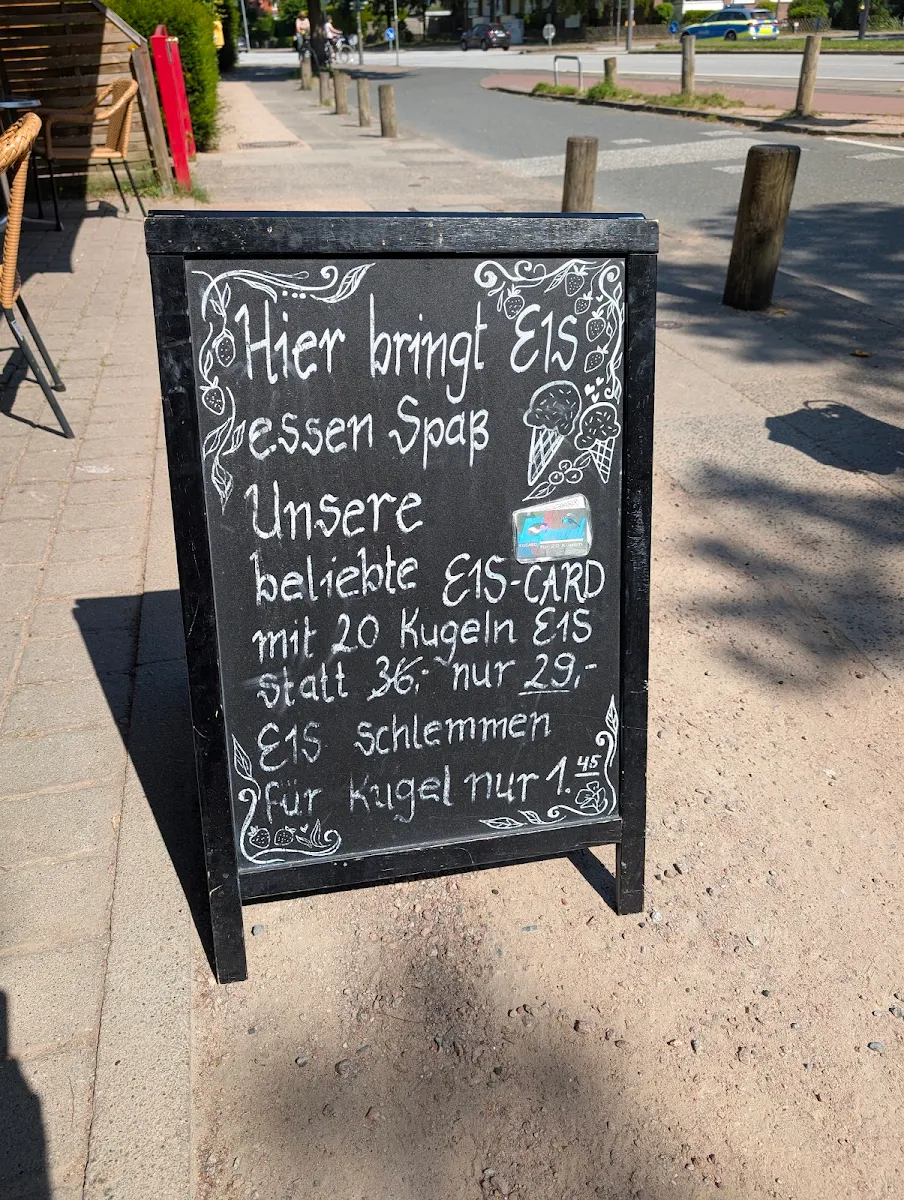 Hier bringt EIS
essen Spaß
Unsere
beliebte EIS-CARD
mit 20 Kugeln EIS
statt 36,- nur 29,-
EIS schlemmen
für Kugel nur 1.45